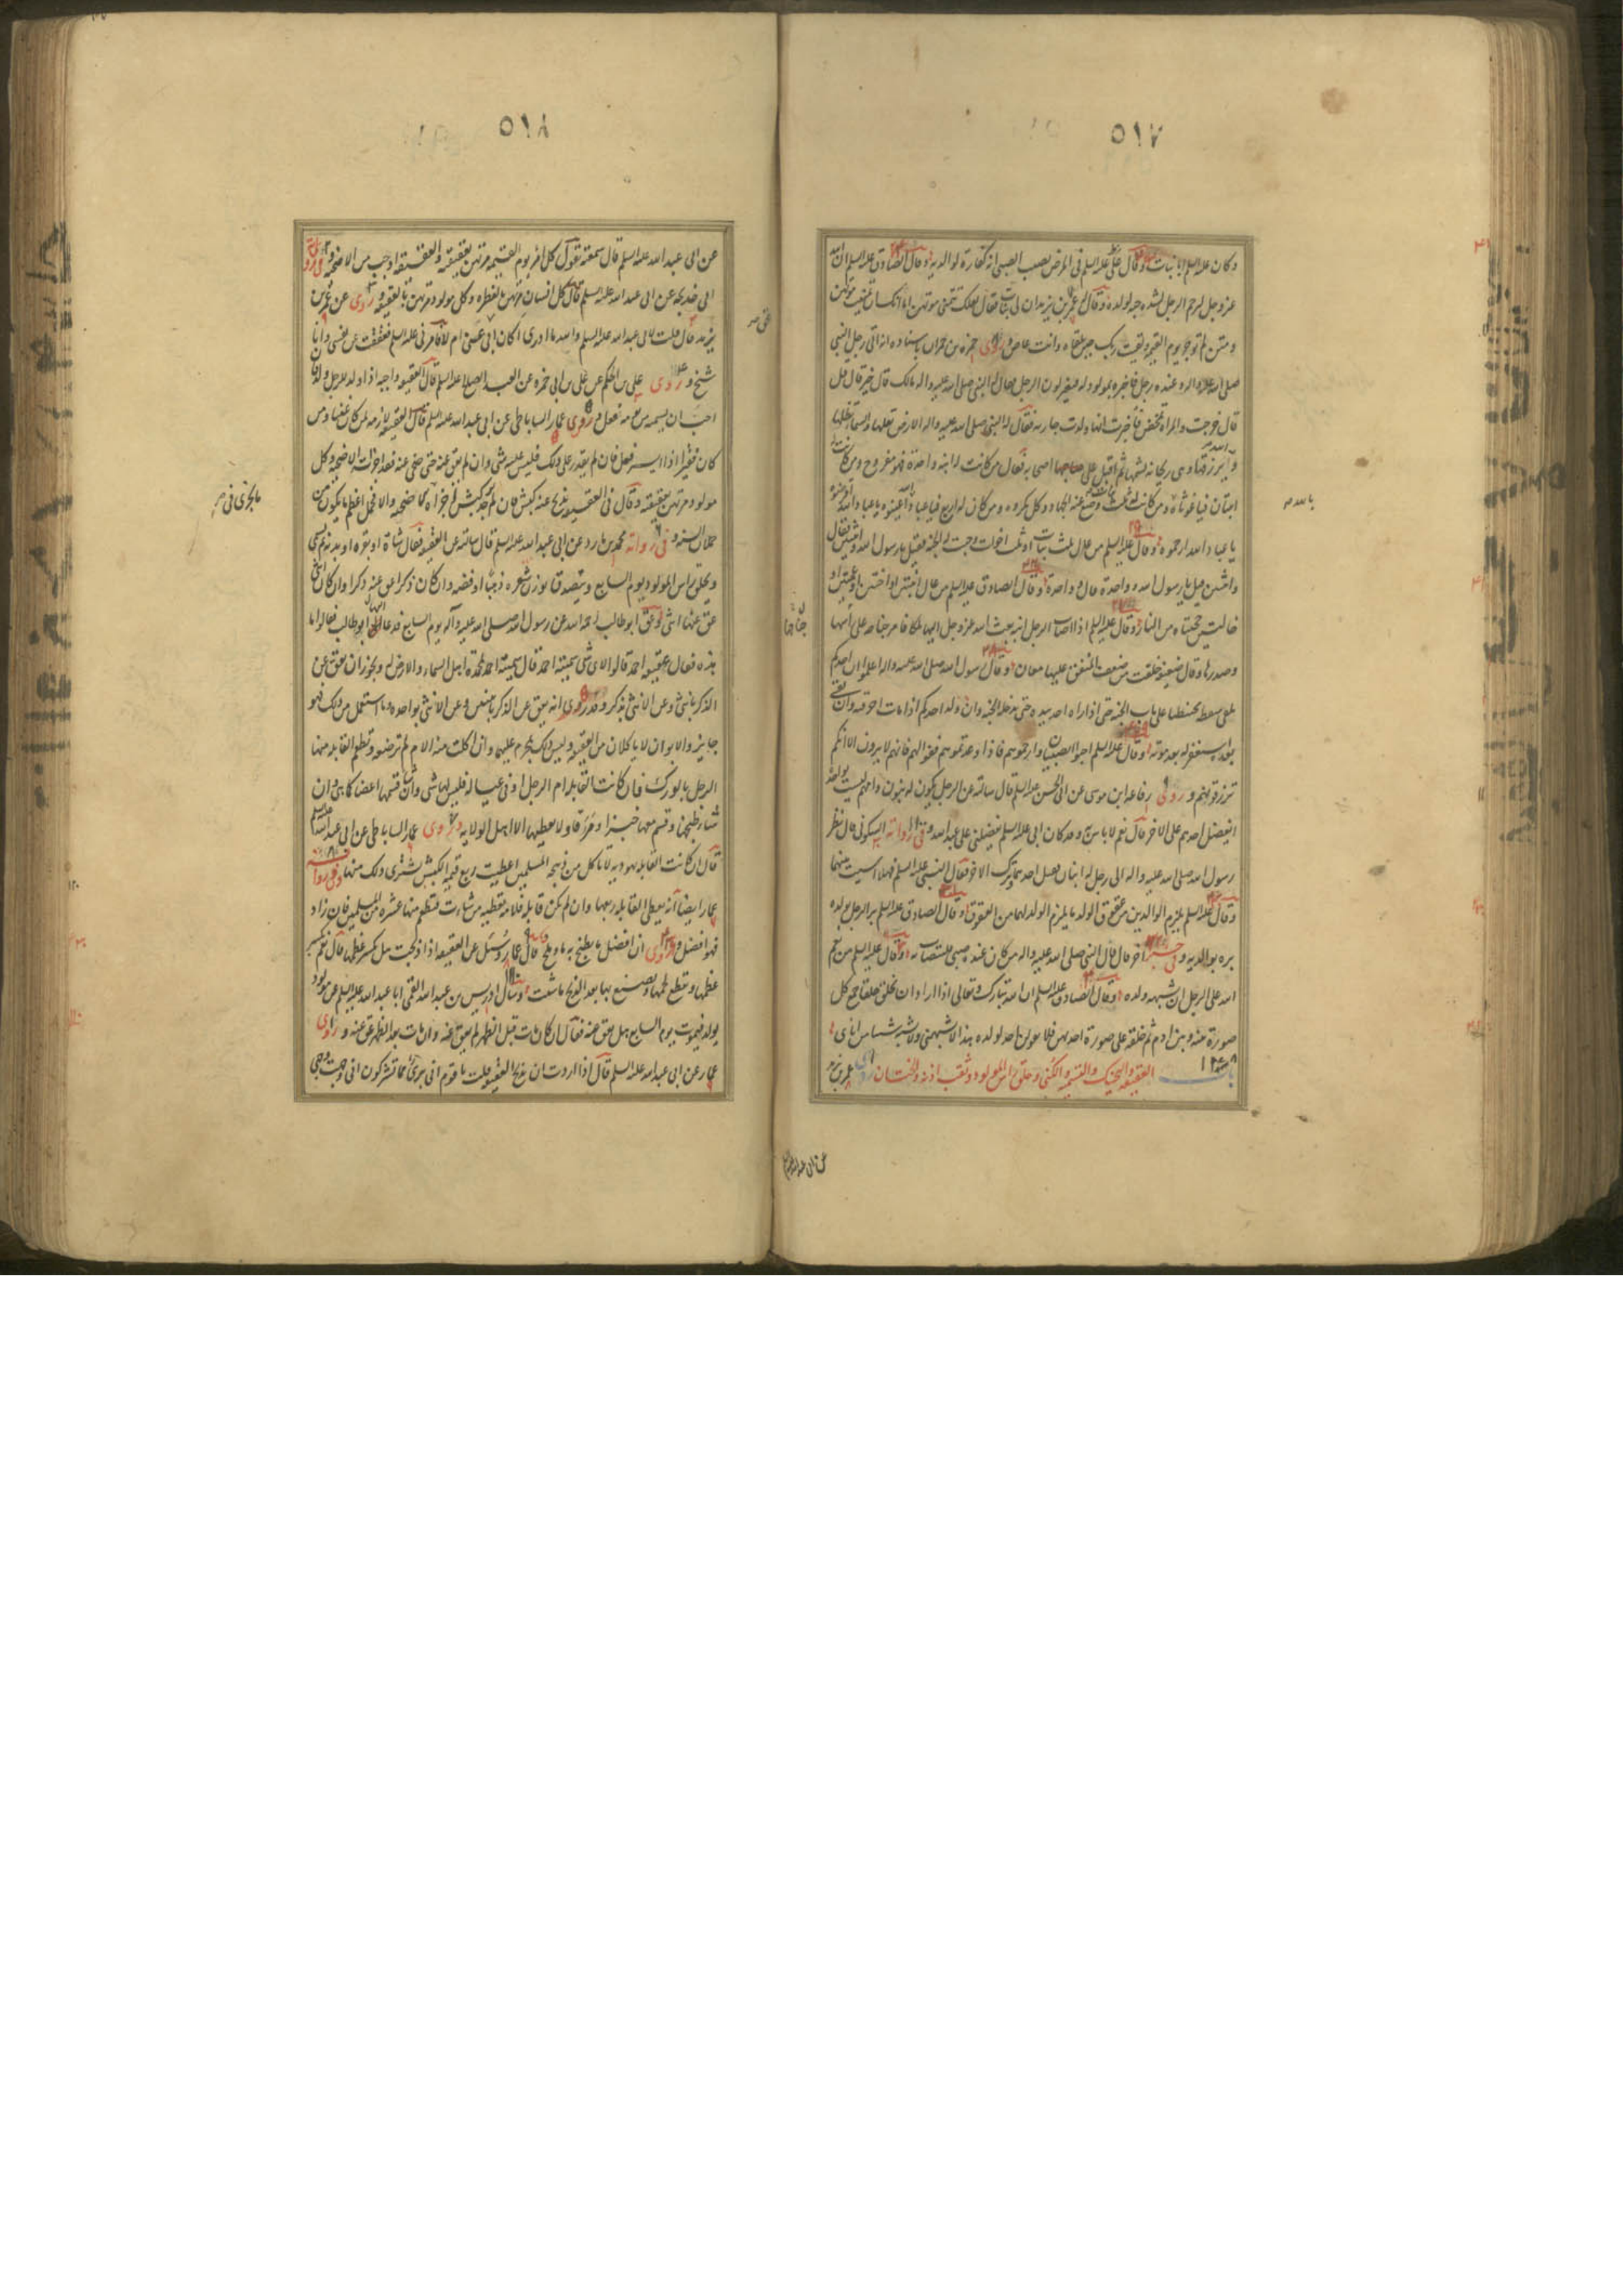 ٥١٧
وكان عليه السلم ابا بنات وقال علي عليه السلم في المرض يصيب الصبي انه كفارة لوالديه وقال الصادق عليه السلم ان الله
عز وجل ليرحم الرجل لشدة حبه لولده وقال له عمر بن يزيد ان لي بنات فقال لعلك تتمنى موتهن اما انك ان تمنيت موتهن
ومتن لم توجر يوم القيمة ولقيت ربك حين تلقاه وانت عاص وروى حمزة بن حمران باسناده انه اتى رجل النبي
صلى الله عليه واله وعنده رجل فاخبره بمولود له فتغير لون الرجل فقال له النبي صلى الله عليه واله مالك قال خير قال قل
قال خرجت والمراة تمخض فاخبرت انها ولدت جارية فقال له النبي صلى الله عليه واله الارض تقلها والسماء تظلها
والله يرزقها وهي ريحانة تشمها ثم اقبل على اصحابه فقال من كانت له ابنة واحدة فهو مفروح ومن كانت له
ابنتان فيا غوثاه ومن كانت له ثلث وضع عنه الجهاد وكل مكروه ومن كان له اربع فيا عباد الله اعينوه يا عباد الله اقرضوه
يا عباد الله ارحموه وقال عليه السلم من عال ثلث بنات او ثلث اخوات وجبت له الجنة فقيل يا رسول الله واثنتين فقال
واثنتين قيل يا رسول الله وواحدة قال وواحدة وقال الصادق عليه السلم من عال ابنتين او اختين او عمتين او
خالتين حجبتاه من النار وقال عليه السلم اذا اصاب الرجل ابنة بعث الله عز وجل اليها ملكا فامر جناحه على راسها
وصدرها وقال ضعيفة خلقت من ضعف المنفق عليها معان وقال رسول الله صلى الله عليه واله اعلموا ان احدكم
يلقى سقطه محبنطئا على باب الجنة حتى اذا راه اخذ بيده حتى يدخله الجنة وان ولد احدكم اذا مات اجر فيه وان بقي
بعده استغفر له بعد موته وقال عليه السلم احبوا الصبيان وارحموهم فاذا وعدتموهم ففوا لهم فانهم لا يرون الا انكم
ترزقونهم وروى رفاعة ابن موسى عن ابي الحسن عليه السلم قال سالته عن الرجل يكون له بنون وامهم ليست بواحدة
ايفضل احدهم على الاخر قال نعم لا باس به وقد كان ابي عليه السلم يفضلني على عبد الله وفي رواية السكوني قال نظر
رسول الله صلى الله عليه واله الى رجل له ابنان فقبل احدهما وترك الاخر فقال النبي عليه السلم فهلا اسيت بينهما
وقال عليه السلم يلزم الوالدين من عقوق الولد ما يلزم الولد لهما من العقوق وقال الصادق عليه السلم بر الرجل بولده
بره بوالديه وفي خبر اخر قال قال النبي صلى الله عليه واله من كان عنده صبي فليتصاب له وقال عليه السلم من نعم
الله على الرجل ان يشبهه ولده وقال الصادق عليه السلم ان الله تبارك وتعالى اذا اراد ان يخلق خلقا جمع كل
صورة بينه وبين ادم ثم خلقه على صورة احدهم فلا يقولن احد لولده هذا لا يشبهني ولا يشبه شيئا من ابائي
باب العقيقة والتحنيك والتسمية والكنى وحلق راس المولود وثقب اذنه والختان روى عمر بن يزيد
عن ابي عبد الله
٥١٨
عن ابي عبد الله عليه السلم قال سمعته يقول كل امرئ يوم القيمة مرتهن بعقيقته والعقيقة اوجب من الاضحية وفي رواية
ابي خديجة عن ابي عبد الله عليه السلم قال كل انسان مرتهن بالفطرة وكل مولود مرتهن بالعقيقة وروى عن عمر بن
يزيد قال قلت لابي عبد الله عليه السلم والله ما ادري اكان ابي عق عني ام لا فامرني عليه السلم فعققت عن نفسي وانا
شيخ وروى علي بن الحكم عن علي بن ابي حمزة عن العبد الصالح عليه السلم قال العقيقة واجبة اذا ولد للرجل ولد فان
احب ان يسميه من يومه فعل وروى عمار الساباطي عن ابي عبد الله عليه السلم قال العقيقة لازمة لمن كان غنيا ومن
كان فقيرا اذا ايسر فعل فان لم يقدر على ذلك فليس عليه شي وان لم يعق عنه حتى ضحي عنه فقد اجزاته الاضحية وكل
مولود مرتهن بعقيقته وقال في العقيقة يذبح عنه كبش فان لم يوجد كبش اجزاه ما يجزي في الاضحية والا فحمل اعظم ما يكون من
حملان السنة وفي رواية محمد بن مارد عن ابي عبد الله عليه السلم قال سالته عن العقيقة فقال شاة او بقرة او بدنة ثم يسمى
ويحلق راس المولود يوم السابع ويتصدق بوزن شعره ذهبا او فضة وان كان ذكرا عق عنه ذكرا وان كان انثى
عق عنها انثى وعق ابو طالب رحمه الله عن رسول الله صلى الله عليه وآله يوم السابع فدعا ال ابو طالب فقالوا ما
هذه فقال عقيقة احمد قالوا لاي شي سميته احمد قال سميته احمد لمحمدة اهل السماء والارض له ويجوز ان يعق عن
الذكر بانثى وعن الانثى بذكر وقد روى انه يعق عن الذكر بانثيين وعن الانثى بواحدة وما استعمل من ذلك فهو
جايز والابوان لا ياكلان من العقيقة وليس ذلك بمحرم عليهما وان اكلت منه الام لم ترضعه وتطعم القابلة منها
الرجل بالورك فان كانت القابلة ام الرجل او في عياله فليس لها شي وان شاء قسمها اعضاء كما هي وان
شاء طبخها وقسم معها خبزا ومرقا ولا يعطيها الا اهل الولاية وروى عمار الساباطي عن ابي عبد الله عليه السلم
قال ان كانت القابلة يهودية لا تاكل من ذبيحة المسلمين اعطيت ربع قيمة الكبش يشترى ذلك منها وفي رواية
عمار ايضا انه يعطي القابلة ربعها وان لم تكن قابلة فلامه تعطيه من شاءت وتطعم منها عشرة من المسلمين فان زاد
فهو افضل وروى ان افضل ما يطبخ به ماء وملح قال عمار وسئل عن العقيقة اذا ذبحت هل يكسر عظمها قال نعم يكسر
عظمها ويقطع لحمها وتصنع بها بعد الذبح ما شئت وسال ادريس بن عبد الله القمي ابا عبد الله عليه السلم عن مولود
يولد فيموت يوم السابع هل يعق عنه فقال ان كان مات قبل الظهر لم يعق عنه وان مات بعد الظهر عق عنه وروى
عمار عن ابي عبد الله عليه السلم قال اذا اردت ان تذبح العقيقة قلت يا قوم اني بريء مما تشركون اني وجهت وجهي
ما يجزي في